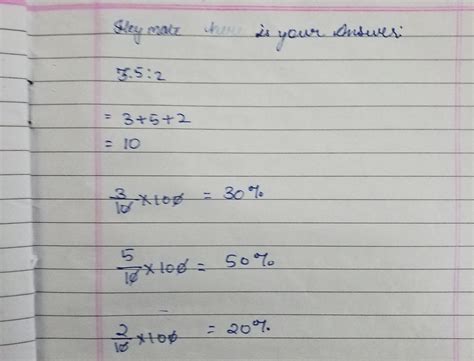 Hey mate here is your Answer:
3:5:2
= 3+5+2
= 10
3/10 × 100 = 30%
5/10 × 100 = 50%
2/10 × 100 = 20%